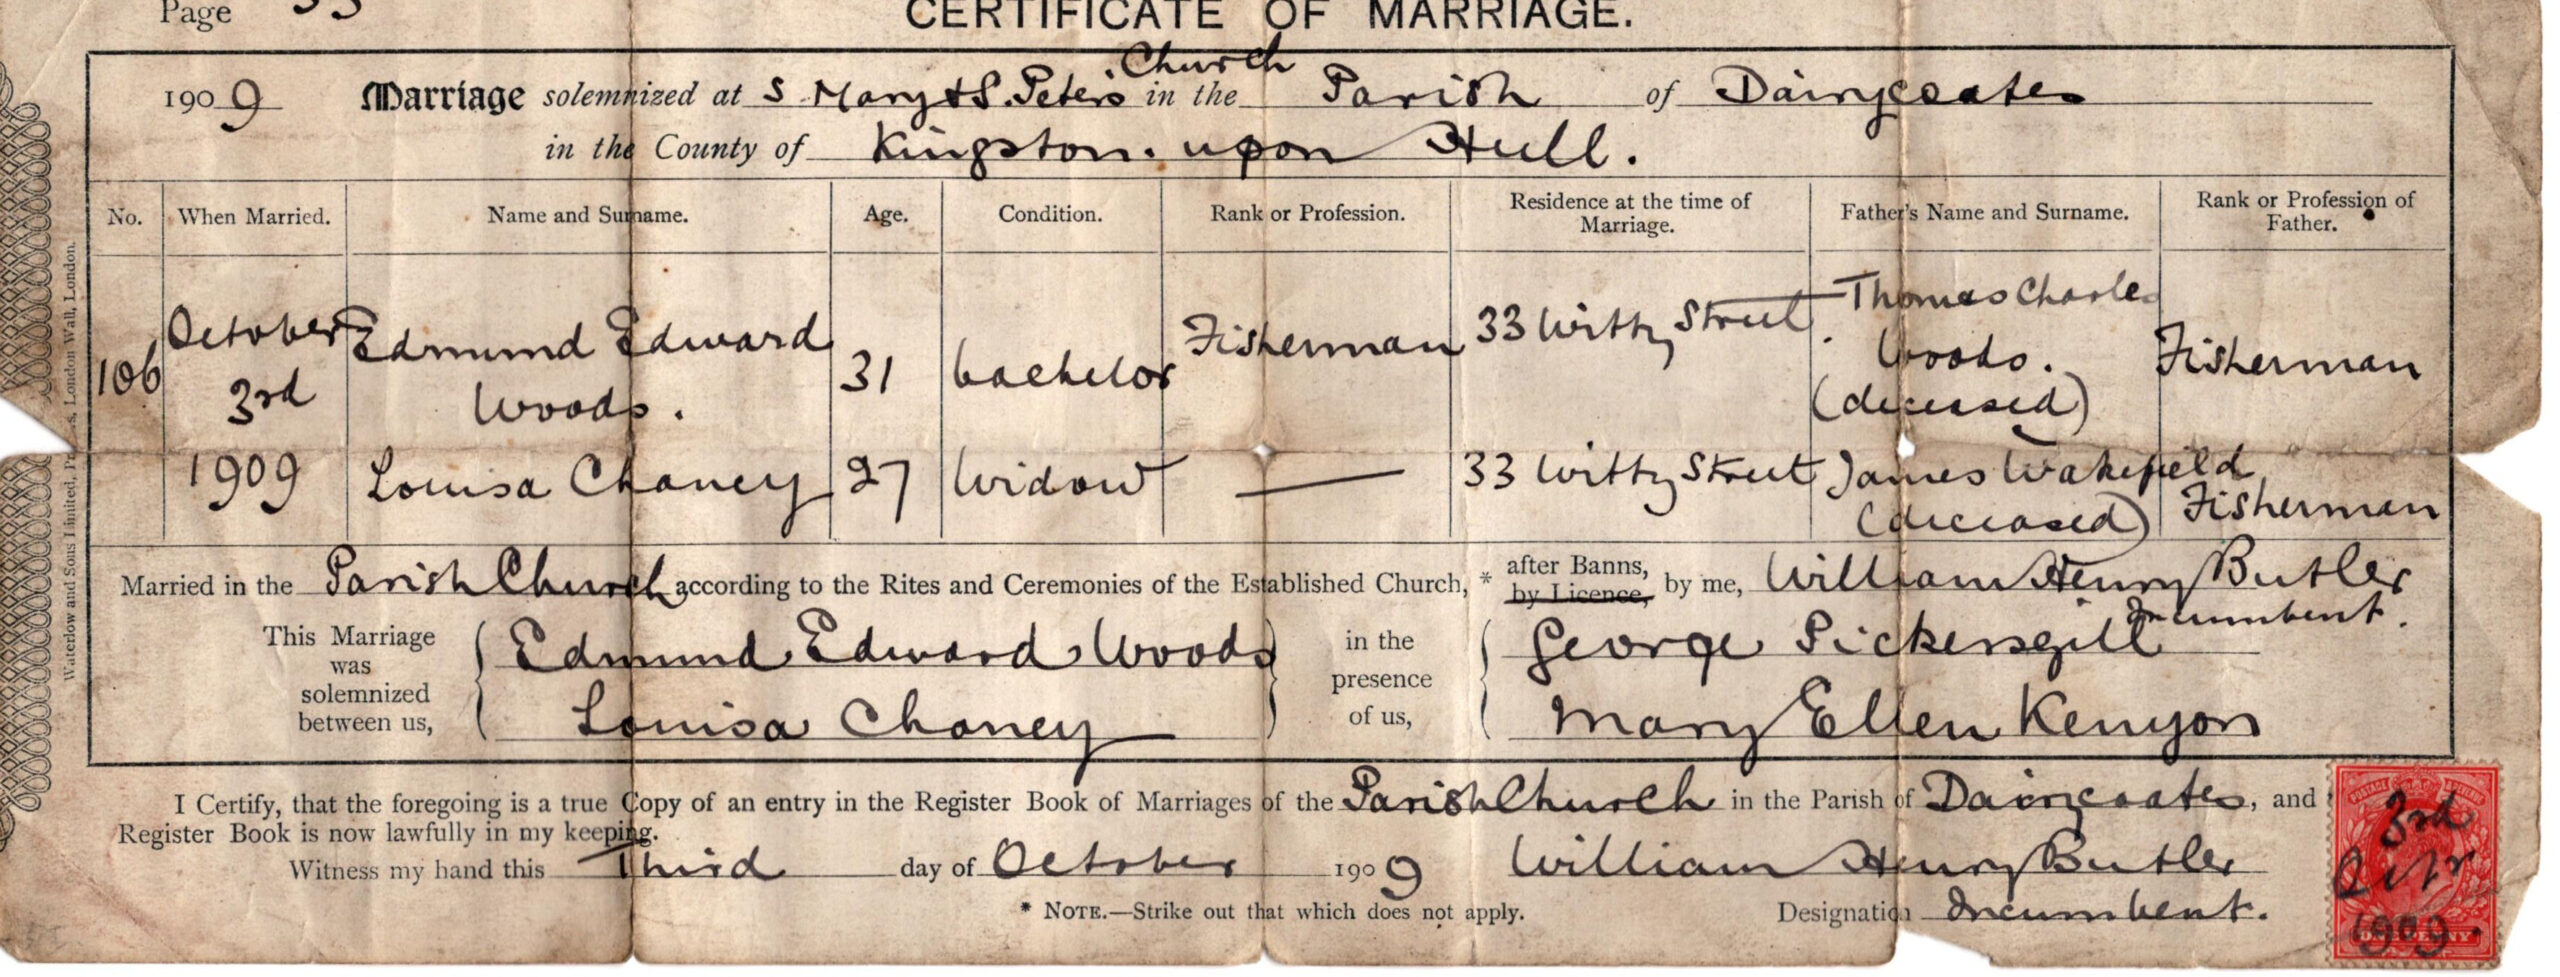 Page 53
CERTIFICATE OF MARRIAGE.
1909 Marriage solemnized at S. Mary & S. Peter's Church in the Parish of Dairycoates
in the County of Kingston. upon Hull.
No. When Married. Name and Surname. Age. Condition. Rank or Profession. Residence at the time of Marriage. Father's Name and Surname. Rank or Profession of Father.
106 October 3rd 1909 Edmund Edward Woods. 31 bachelor Fisherman 33 Witty Street Thomas Charles Woods. (deceased) Fisherman
Louisa Chaney 27 Widow — 33 Witty Street James Wakefield (deceased) Fisherman
Married in the Parish Church according to the Rites and Ceremonies of the Established Church, * after Banns, by Licence, by me, William Henry Butler
Incumbent.
This Marriage was solemnized between us, Edmund Edward Woods in the presence of us, George Pickersgill
Louisa Chaney Mary Ellen Kenyon
I Certify, that the foregoing is a true Copy of an entry in the Register Book of Marriages of the Parish Church in the Parish of Dairycoates, and
Register Book is now lawfully in my keeping.
Witness my hand this Third day of October 1909 William Henry Butler
* NOTE.—Strike out that which does not apply. Designation Incumbent.
POSTAGE REVENUE
3rd
Octr
1909.
ONE PENNY
Waterlow and Sons Limited, London Wall, London.